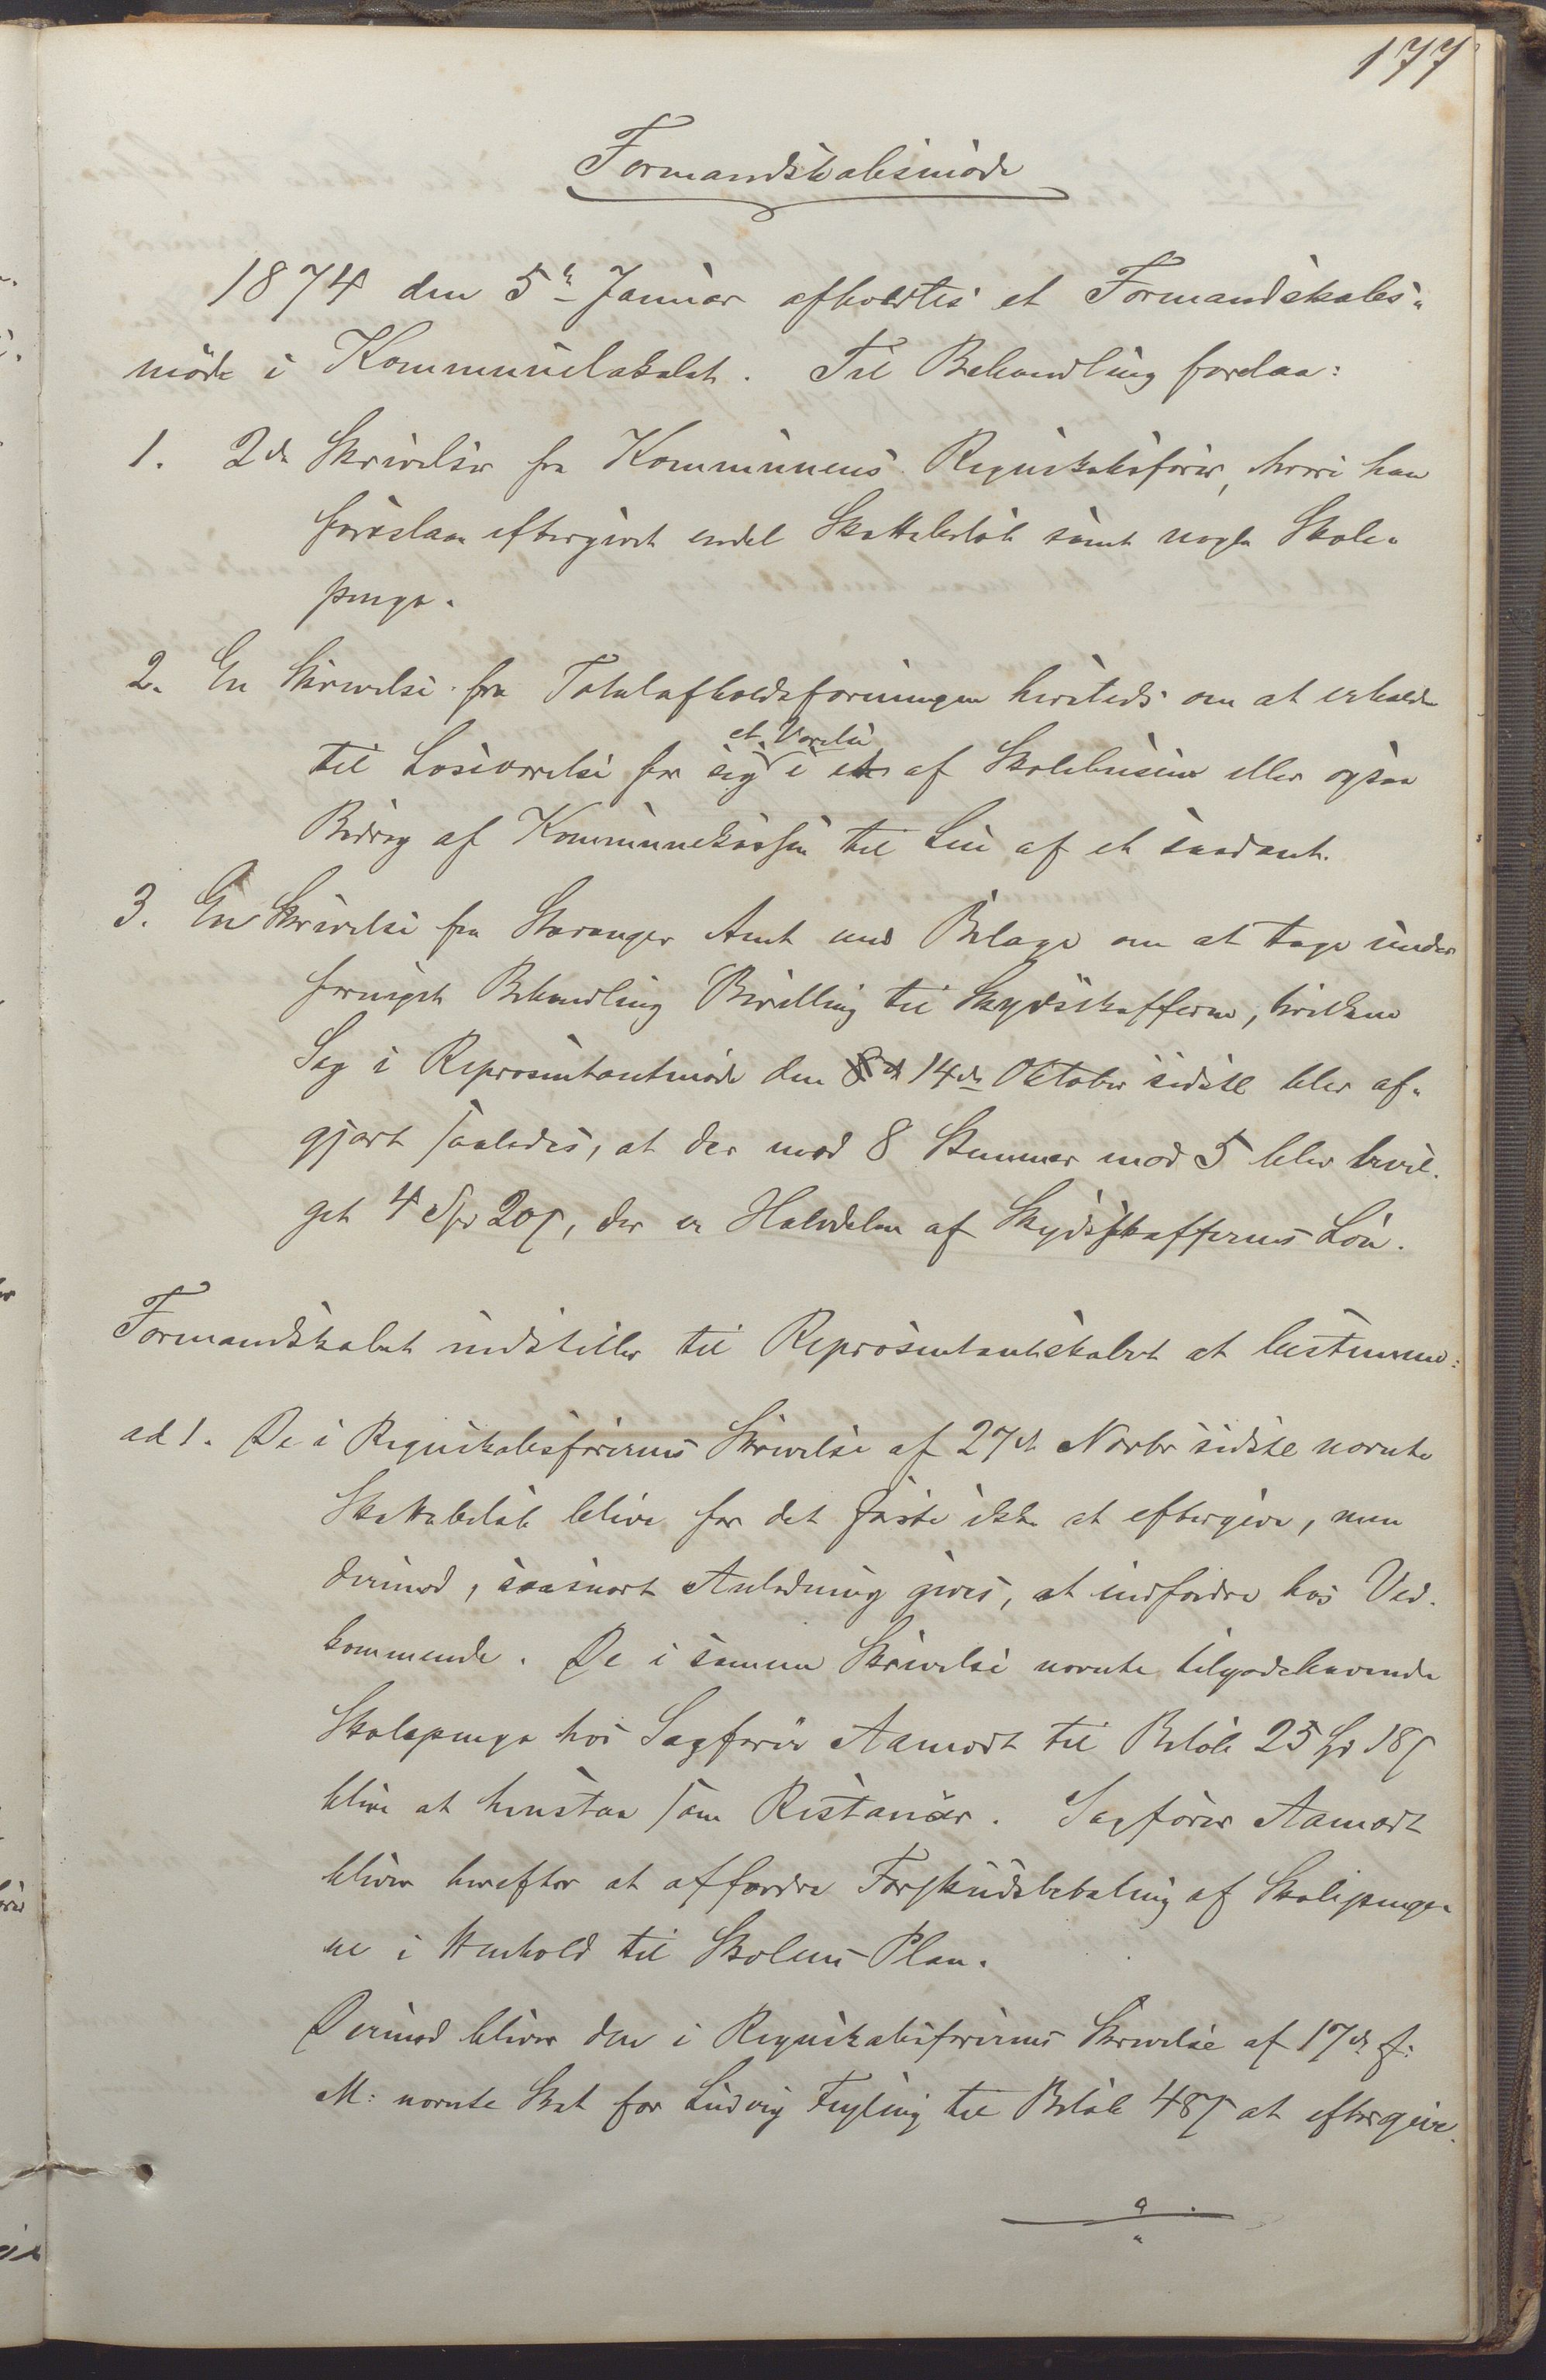 177
Formandskabsmöde
1874 den 5te Januar afholdtes et Formandskabs-
möde i Kommunelokalet. Til Behandling forelaa:
1. 2de Skrivelser fra Kommunens Regnskabsförer, hvori han
foreslaar eftergivet endel Skattebelöb samt nogle Skole-
penge.
2. En Skrivelse fra Totalafholdsforeningen hersteds om at erholde
et Værelse
til Losiværelse for sig i et af Skolehusene eller ogsaa
Bidrag af Kommunekassen til Leie af et saadant.
3. En Skrivelse fra Stavanger Amt med Bilage om at tage under
fornyet Behandling Bevilling til Skydsskafferen, hvilken
Sag i Repræsentantmöde den 14de Oktober sidstl blev af-
gjort saaledes, at der med 8 Stemmer mod 5 blev bevil-
get 4 Spd 20 s, der er Halvdelen af Skydsskafferens Lön.
Formandskabet indstiller til Repræsentantskabet at bestemme:
ad 1. De i Regnskabsförerens Skrivelse af 27de Novbr sidstl nævnte
Skattebelöb blive for det förste ikke at eftergive, men
derimod, saasnart Anledning gives, at indfordre hos Ved-
kommende. De i samme Skrivelse nævnte tilgodehavende
Skolepenge hos Sagförer Aamodt til Belöb 25 Spd 18 s
blive at henstaa som Restancer. Sagförer Aamodt
bliver herefter at affordre Forskudsbetaling af Skolepenge-
ne i Henhold til Skolens Plan.
Derimod bliver den i Regnskabsförerens Skrivelse af 17de f:
M: nævnte Skat for Ludvig Fugling til Belöb 48 s at eftergive.